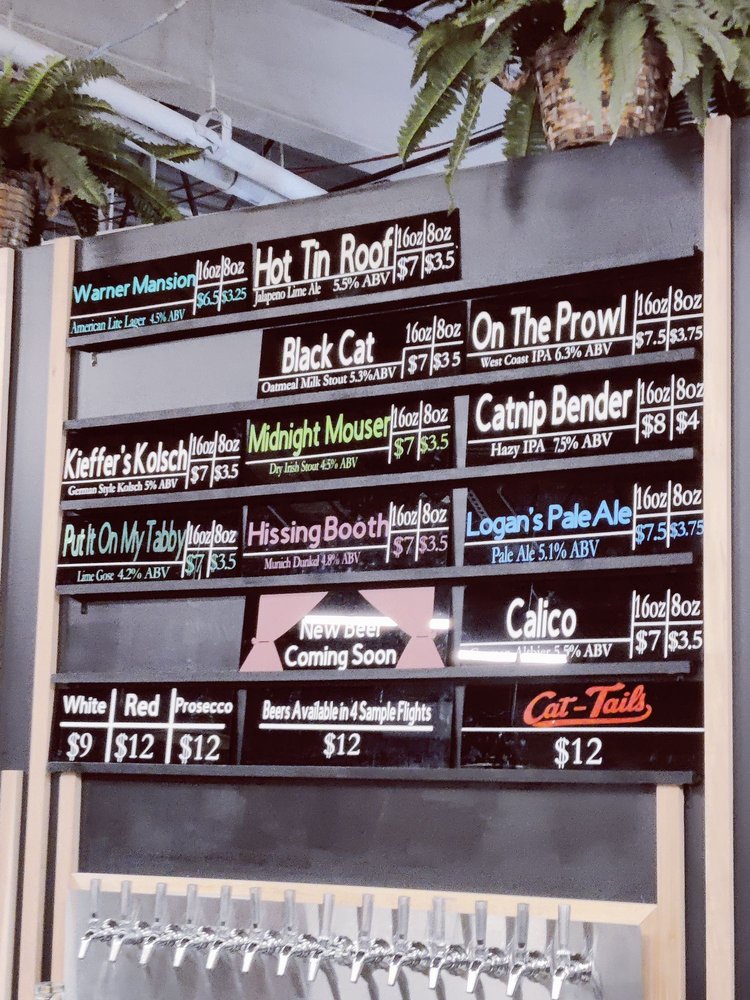 Warner Mansion 16oz 8oz
$6.5 $3.25
American Lite Lager 4.5% ABV
Hot Tin Roof 16oz 8oz
$7 $3.5
Jalapeno Lime Ale 5.5% ABV
Black Cat 16oz 8oz
$7 $3.5
Oatmeal Milk Stout 5.3% ABV
On The Prowl 16oz 8oz
$7.5 $3.75
West Coast IPA 6.3% ABV
Kieffer's Kolsch 16oz 8oz
$7 $3.5
German Style Kolsch 5% ABV
Midnight Mouser 16oz 8oz
$7 $3.5
Dry Irish Stout 4.5% ABV
Catnip Bender 16oz 8oz
$8 $4
Hazy IPA 7.5% ABV
Put It On My Tabby 16oz 8oz
$7 $3.5
Lime Gose 4.2% ABV
Hissing Booth 16oz 8oz
$7 $3.5
Munich Dunkel 4.8% ABV
Logan's Pale Ale 16oz 8oz
$7.5 $3.75
Pale Ale 5.1% ABV
New Beer
Coming Soon
Calico 16oz 8oz
$7 $3.5
German Altbier 5.5% ABV
White Red Prosecco
$9 $12 $12
Beers Available in 4 Sample Flights
$12
Cat-Tails
$12